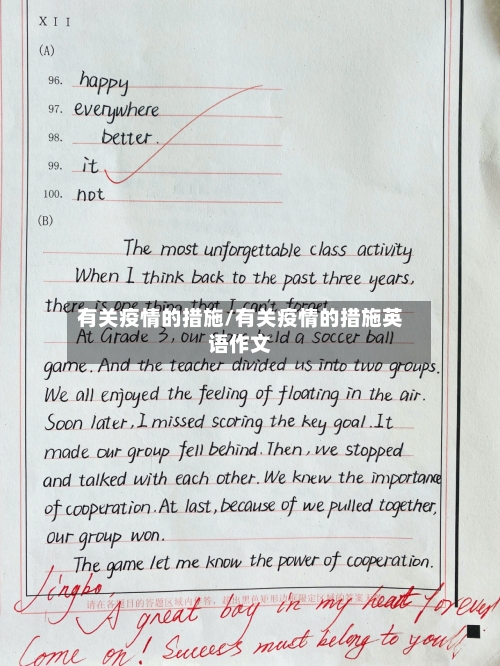 XII
(A)
96. happy
97. everywhere
98. better.
99. it
100. not
(B)
The most unforgettable class activity
When I think back to the past three years,
there is one thing that I can't forget.
有关疫情的措施/有关疫情的措施英
语作文
At Grade 3, our held a soccer ball
game. And the teacher divided us into two groups.
We all enjoyed the feeling of floating in the air.
Soon later, I missed scoring the key goal. It
made our group fell behind. Then, we stopped
and talked with each other. We knew the importance
of cooperation. At last, because of we pulled together,
our group won.
The game let me know the power of cooperation.
请在各题目的答题区域内作答，超出黑色矩形边框限定区域的答案
Jingbo,
A great boy in my heart forever!
Come on! Success must belong to you!